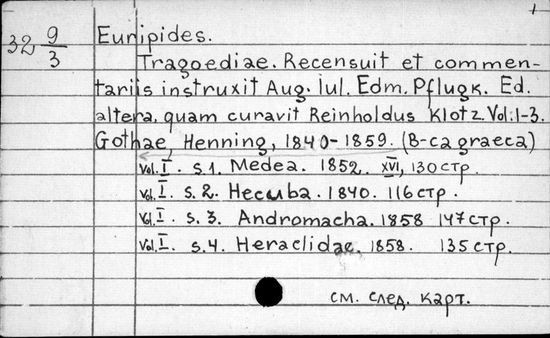 1
32 9/3
Euripides.
Tragoediae. Recensuit et commen-
tariis instruxit Aug. Iul. Edm. Pflugk. Ed.
altera, quam curavit Reinholdus Klotz. Vol. 1-3.
Gothae, Henning, 1840-1859. (B-ca graeca)
Vol. I. s. 1. Medea. 1852. XVI, 130 стр.
Vol. I. s. 2. Hecuba. 1840. 116 стр.
Vol. I. s. 3. Andromacha. 1858 147 стр.
Vol. I. s. 4. Heraclidae. 1858. 135 стр.
см. след. карт.